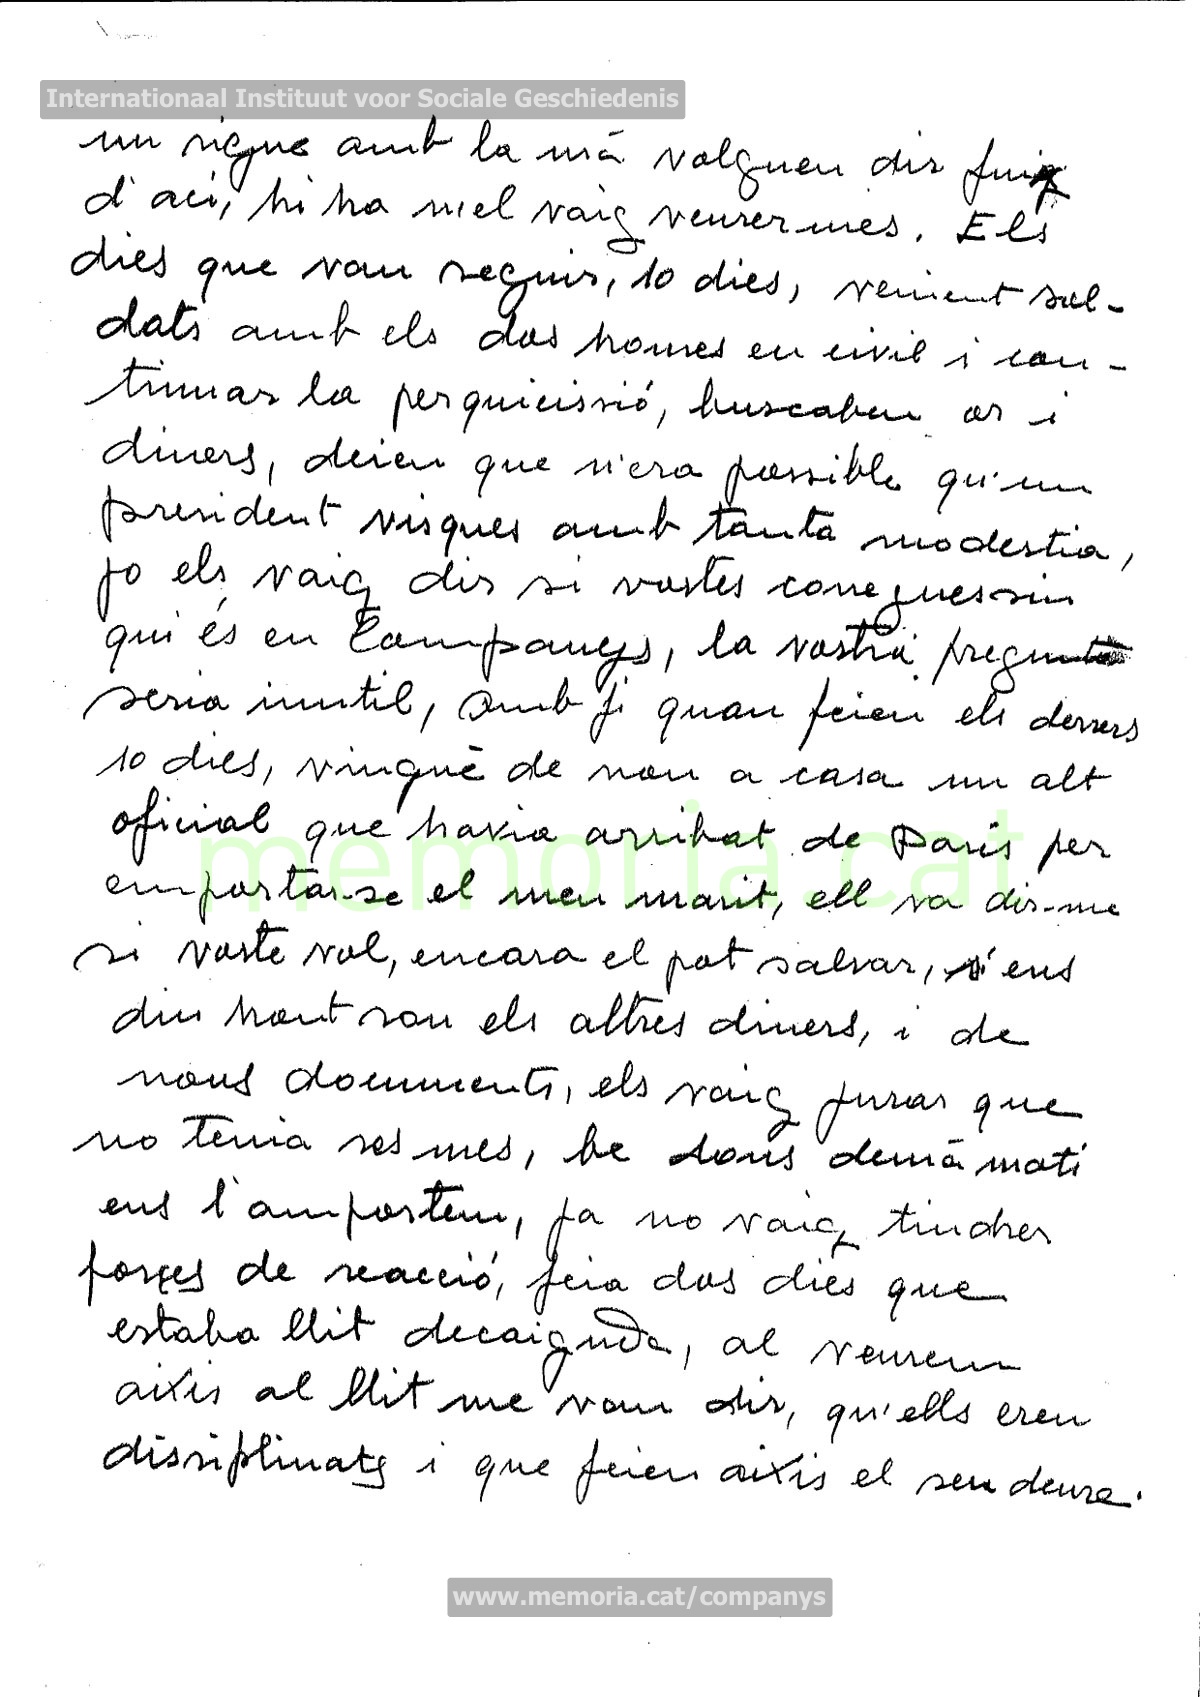 Internationaal Instituut voor Sociale Geschiedenis
un signe amb la mà volguen dir fuig
d'aci, hi ha n'el vaig veurer mes. Els
dies que van seguir, 10 dies, venient sol-
dats amb els dos homes en civil i con-
tinuar la perquicissió, buscaben or i
diners, deien que n'era possible qu'un
president visques amb tanta modestia,
jo els vaig dir si vostes conneguessin
qui és en Companys, la vostra pregunta
seria inutil, amb fi quan feien els derrers
10 dies, vingué de nou a casa un alt
oficial que havia arribat de Paris per
emportar-se el meu marit, ell va dir-me
si voste vol, encara el pot salvar, s'ens
diu hont son els altres diners, i de
nous documents, els vaig jurar que
no tenia res mes, be dons demà mati
ens l'amportem, ja no vaig tindrer
forçes de reacció, feia dos dies que
estaba llit decaiguda, al veurem
aixis al llit me van dir, qu'ells eren
dissiplinats i que feien aixis el seu deure.
memoria.cat
www.memoria.cat/companys